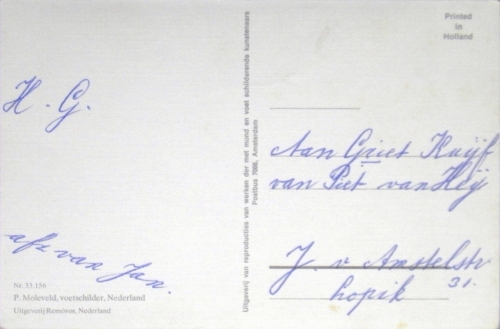 H. G.
afz van Jan.
Nr. 33.156
P. Moleveld, voetschilder, Nederland
Uitgeverij Removos, Nederland
Uitgeverij van reproducties van werken der met mond en voet schilderende kunstenaars
Postbus 7086, Amsterdam
Printed
in
Holland
Aan Griet Kuijf
van Piet van Heij
J. v Amstelstr
31.
Lopik